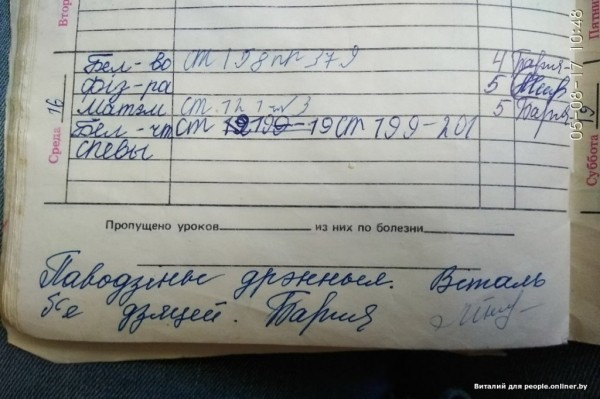 Втор
Бел-во ст 158 пр 379 4 Бария
Фіз-ра 5
Матэм ст. 121 №3 5 Бария
Бел-чт ст 199-19 ст 199-201
Спевы
Среда 16
Пятни
Суббота 19
05-08-17 10:48
Пропущено уроков из них по болезни
Паводзіны дрэнныя. Віталь
б'е дзяцей. Бария
Виталий для people.onliner.by